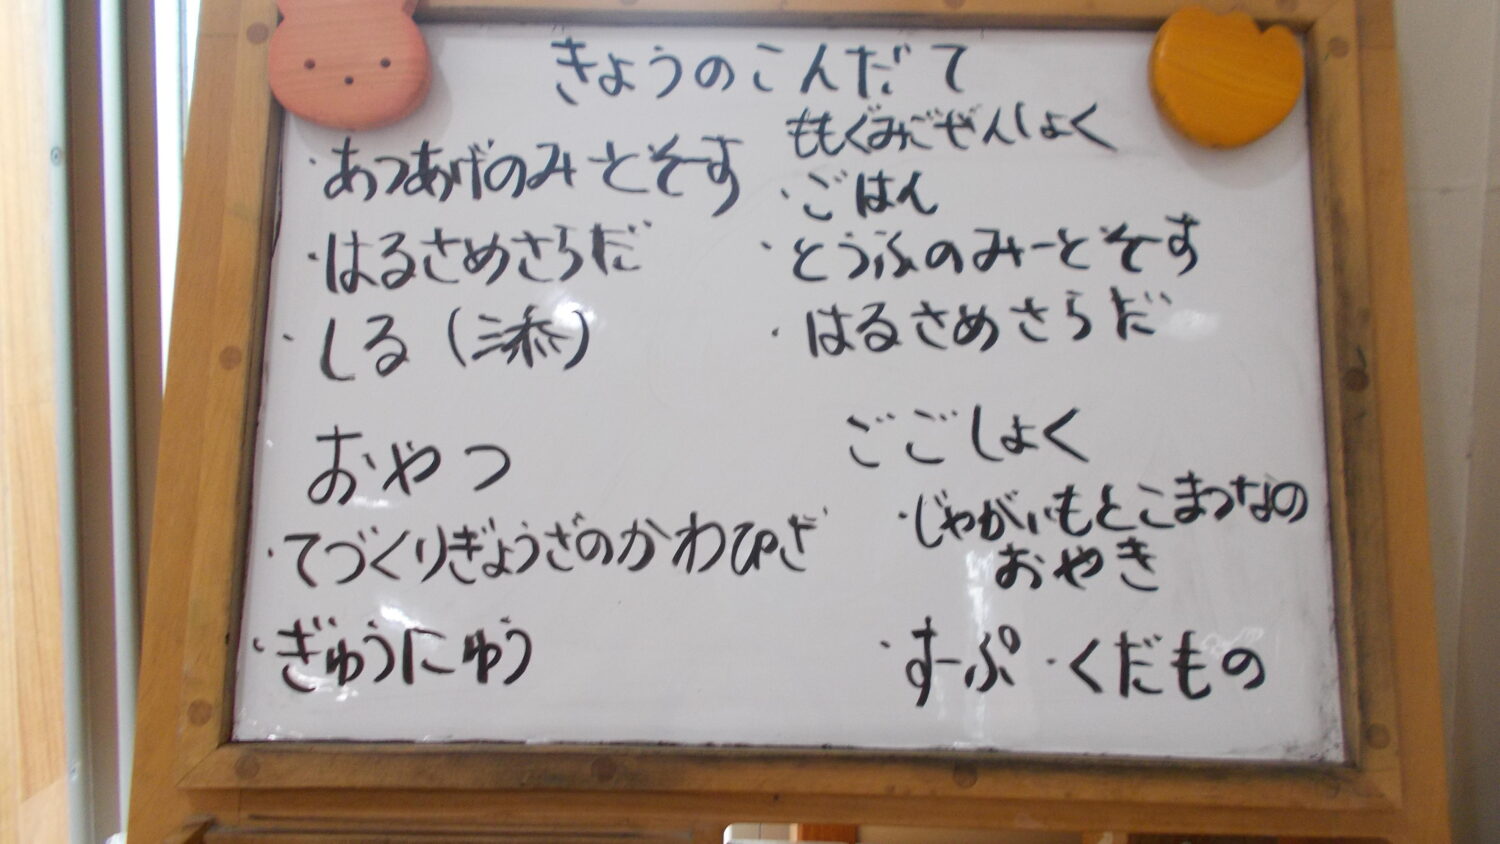 きょうのこんだて
・あつあげのみーとそーす
・はるさめさらだ
・しる(三添)
おやつ
・てづくりぎょうざのかわぴざ
・ぎゅうにゅう
ももぐみごぜんしょく
・ごはん
・とうふのみーとそーす
・はるさめさらだ
ごごしょく
・じゃがいもとこまつなの
おやき
・すーぷ・くだもの